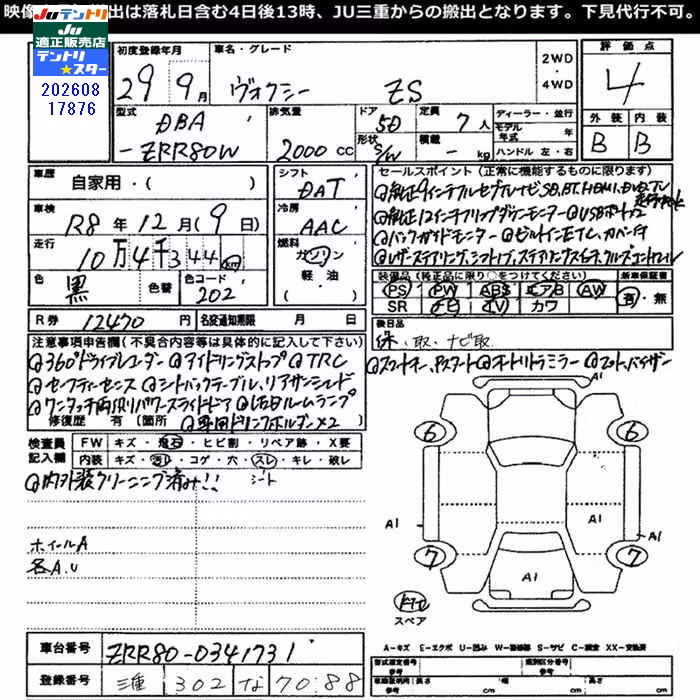 映像　　　出は落札日含む4日後13時、JU三重からの搬出となります。下見代行不可。
JUテントリ
JU
適正販売店
テントリ★スター
202608
17876
初度登録年月
29年 9月
車名・グレード
ヴォクシー ZS
2WD・4WD
評価点
4
型式
DBA
-ZRR80W
排気量
2000cc
ドア
5D
形状
S/W
定員
7人
積載
- kg
ディーラー・並行
モデル年式 年
ハンドル 左・右
外装 内装
B B
車歴
自家用・( )
シフト
DAT
車検
R8年12月(9日)
冷房
AAC
走行
10万4千344km
燃料
ガソリン
軽・油
( )
色
黒
色替
色コード
202
R券 12470円
名変通知期限 月 日
セールスポイント(正常に機能するものに限ります)
純正9インチフルセグナレナビSD,BT,HDMI,DVD,TV
走行中OK
純正12インチフリップダウンモニター USBポート×2
バックガイドモニター ビルトインETC、カバー付
レザーステアリング、シフトノブ、ステアリングスイッチ、クルーズコントロール
装備品(純正品に限り○をつけてください)
PS PW ABS エアB AW
SR ナビ TV カワ
新車保証書
有・無
後日品
保、取、ナビ取
スマートキー、Pスタート オートリトラミラー マット、バイザー
注意事項申告欄(不具合内容等は具体的に記入して下さい)
360°ドライブレコーダー アイドリングストップ TRC
セーフティーセンス シートバックテーブル、リアサンシェード
ワンタッチ両側パワースライドドア LEDルームランプ
修復歴 有 (箇所 専用ドリンクホルダー×2
検査員記入欄
FW キズ・飛石・ヒビ割・リペア跡・X要
内装 キズ・汚れ・コゲ・穴・スレ・キレ・破レ
内外装クリーニング済み!! シート
ホイールA
各A.U
A1
6 6
A1 A1 A1
7 7
A1
スペア
A-キズ E-エクボ U-凹み W-補修跡 S-サビ C-腐食 XX-交換済
車台番号 ZRR80-0341731
登録番号 三重 302 な 70-88
型式指定番号
参考
類別区分番号
参考
車輌証明用
参考
長さ cm
幅 cm
高さ cm